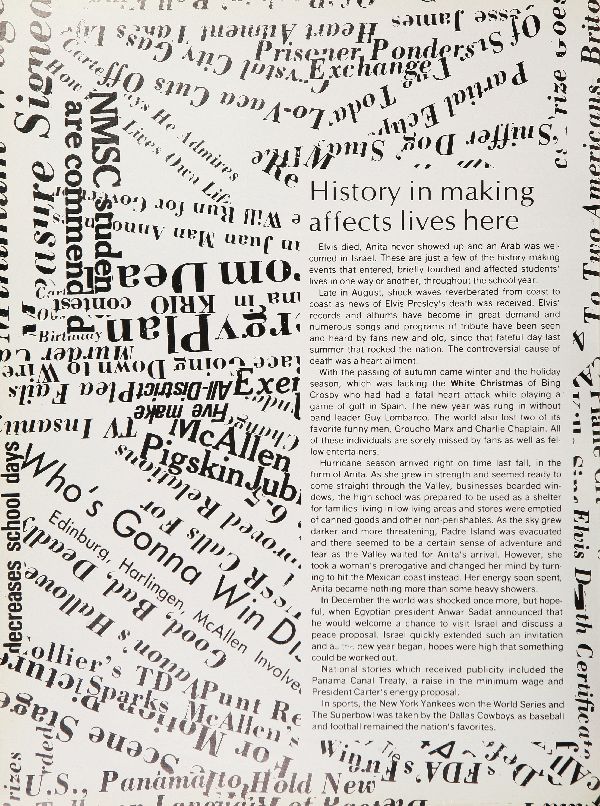 Jesse James
Heart Ailment Takes Life
Of Sis
Prisoner Ponders
Crystal City Gas
Exchange
Lo-Vaca Cuts Off
Today
Partial Eclipse
'Sniffer Dog' Study
Carter Says He Admires
How
Lives Own Life
NMSC studen
are commended
easure Signed
Will Run for Govern
an Juan Man Announ
om Dea
KRIO contest
rgy Plan
Birthday
Murder
Going Down to Wire
Plea Fails
All-District
Exer
Five make
TV Insanity
McAllen
Pigskin Jub
roved Relations
SSR Calls For
Who's Gonna Win Di
Edinburg, Harlingen, McAllen Involve
decreases school days
Good, Bad, Deadly
Hallowe
ollier's TD
Punt Re
Sparks McAllen's
Motion Picture
For
Scene Stage
U.S., Panama to Hold New
rizes
Winn
FDA's
To Two Americans, Brito
Elvis Death Certificat
History in making
affects lives here
Elvis died, Anita never showed up and an Arab was wel-
comed in Israel. These are just a few of the history making
events that entered, briefly touched and affected students'
lives in one way or another, throughout the school year.
Late in August, shock waves reverberated from coast to
coast as news of Elvis Presley's death was received. Elvis'
records and albums have become in great demand and
numerous songs and programs of tribute have been seen
and heard by fans new and old, since that fateful day last
summer that rocked the nation. The controversial cause of
death was a heart ailment.
With the passing of autumn came winter and the holiday
season, which was lacking the White Christmas of Bing
Crosby who had had a fatal heart attack while playing a
game of golf in Spain. The new year was rung in without
band leader Guy Lombardo. The world also lost two of its
favorite funny men, Groucho Marx and Charlie Chaplain. All
of these individuals are sorely missed by fans as well as fel-
low entertainers.
Hurricane season arrived right on time last fall, in the
form of Anita. As she grew in strength and seemed ready to
come straight through the Valley, businesses boarded win-
dows, the high school was prepared to be used as a shelter
for families living in low lying areas and stores were emptied
of canned goods and other non-perishables. As the sky grew
darker and more threatening, Padre Island was evacuated
and there seemed to be a certain sense of adventure and
fear as the Valley waited for Anita's arrival. However, she
took a woman's prerogative and changed her mind by turn-
ing to hit the Mexican coast instead. Her energy soon spent,
Anita became nothing more than some heavy showers.
In December the world was shocked once more, but hope-
ful, when Egyptian president Anwar Sadat announced that
he would welcome a chance to visit Israel and discuss a
peace proposal. Israel quickly extended such an invitation
and a new year began, hopes were high that something
could be worked out.
National stories which received publicity included the
Panama Canal Treaty, a raise in the minimum wage and
President Carter's energy proposal.
In sports, the New York Yankees won the World Series and
The Superbowl was taken by the Dallas Cowboys as baseball
and football remained the nation's favorites.